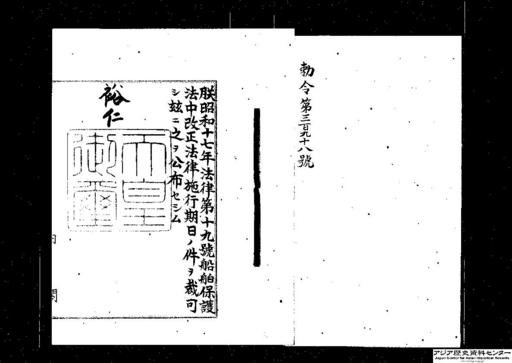 勅令第三百九十八號
朕昭和十七年法律第十九號船舶保護
法中改正法律施行期日ノ件ヲ裁可
シ玆ニ之ヲ公布セシム
裕仁
天皇
御璽
アジア歴史資料センター
Japan Center for Asian Historical Records